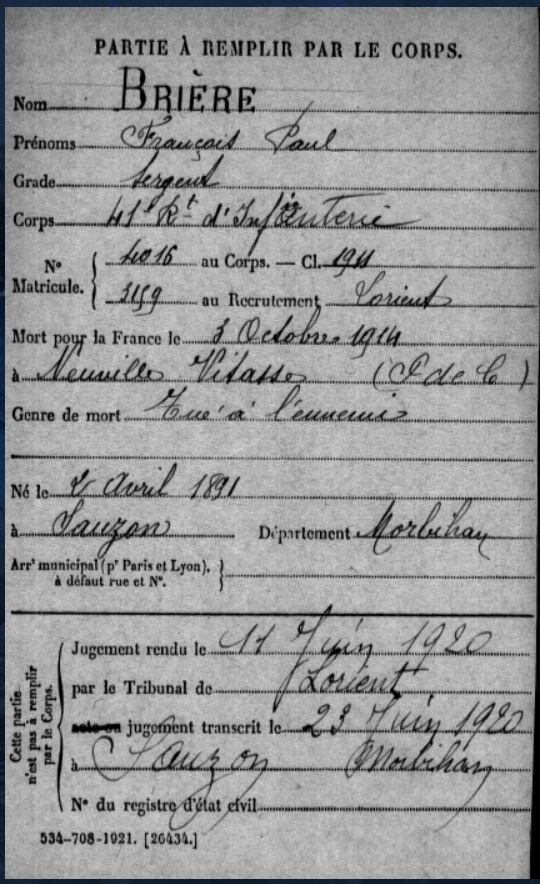 PARTIE À REMPLIR PAR LE CORPS.
Nom BRIÈRE
Prénoms François Paul
Grade Sergent
Corps 41e Rt d'Infanterie
No Matricule. { 4016 au Corps. — Cl. 1911
3159 au Recrutement Lorient
Mort pour la France le 3 Octobre 1914
à Neuville Vitasse (P de C)
Genre de mort Tué à l'ennemi
Né le 2 Avril 1891
à Sauzon Département Morbihan
Arrt municipal (pr Paris et Lyon), }
à défaut rue et No.
Cette partie n'est pas à remplir par le Corps.
Jugement rendu le 11 Juin 1920
par le Tribunal de Lorient
acte ou jugement transcrit le 23 Juin 1920
à Sauzon Morbihan
No du registre d'état civil
534-708-1921. [26434.]